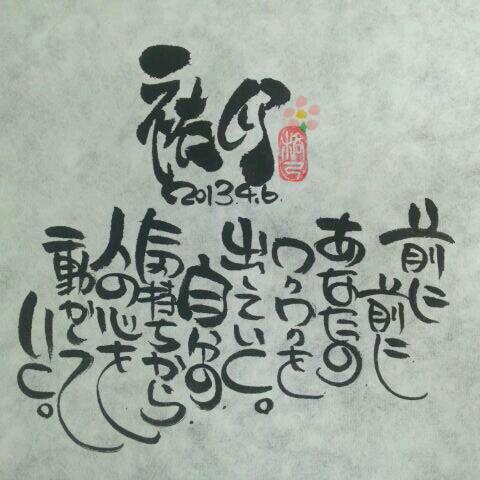 2013.4.6.
前に
前に
あなたの
ワクワクを
出していく。
自分の
気持ちから
人の心を
動かして
いく。